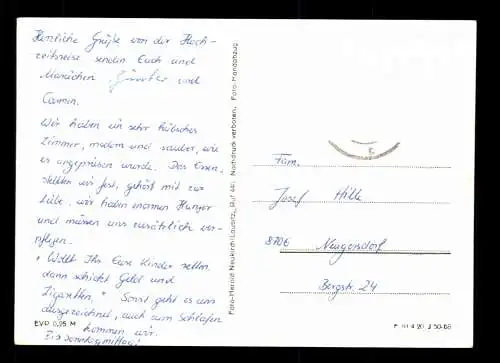 Herzliche Grüße von der Hoch-
zeitsreise senden Euch und
Manichen Günter und
Carmen.
Wir haben ein sehr hübsches
Zimmer, modern und sauber, wie
es angepriesen wurde. Das Essen,
stellten wir fest, gehört mit zur
Liebe, wir haben enormen Hunger
und müssen uns zusätzlich ver-
pflegen.
" Wollt Ihr Eure Kinder retten,
dann schickt Geld und
Zigaretten." Sonst geht es uns
ausgezeichnet, auch zum Schlafen
kommen wir.
Bis Sonntagmittag!
EVP 0,25 M
Foto-Herold Neukirch/Lausitz, Ruf 441. Nachdruck verboten. Foto-Handabzug
Fam.
Josef Hille
8706 Neugersdorf
Bergstr. 24